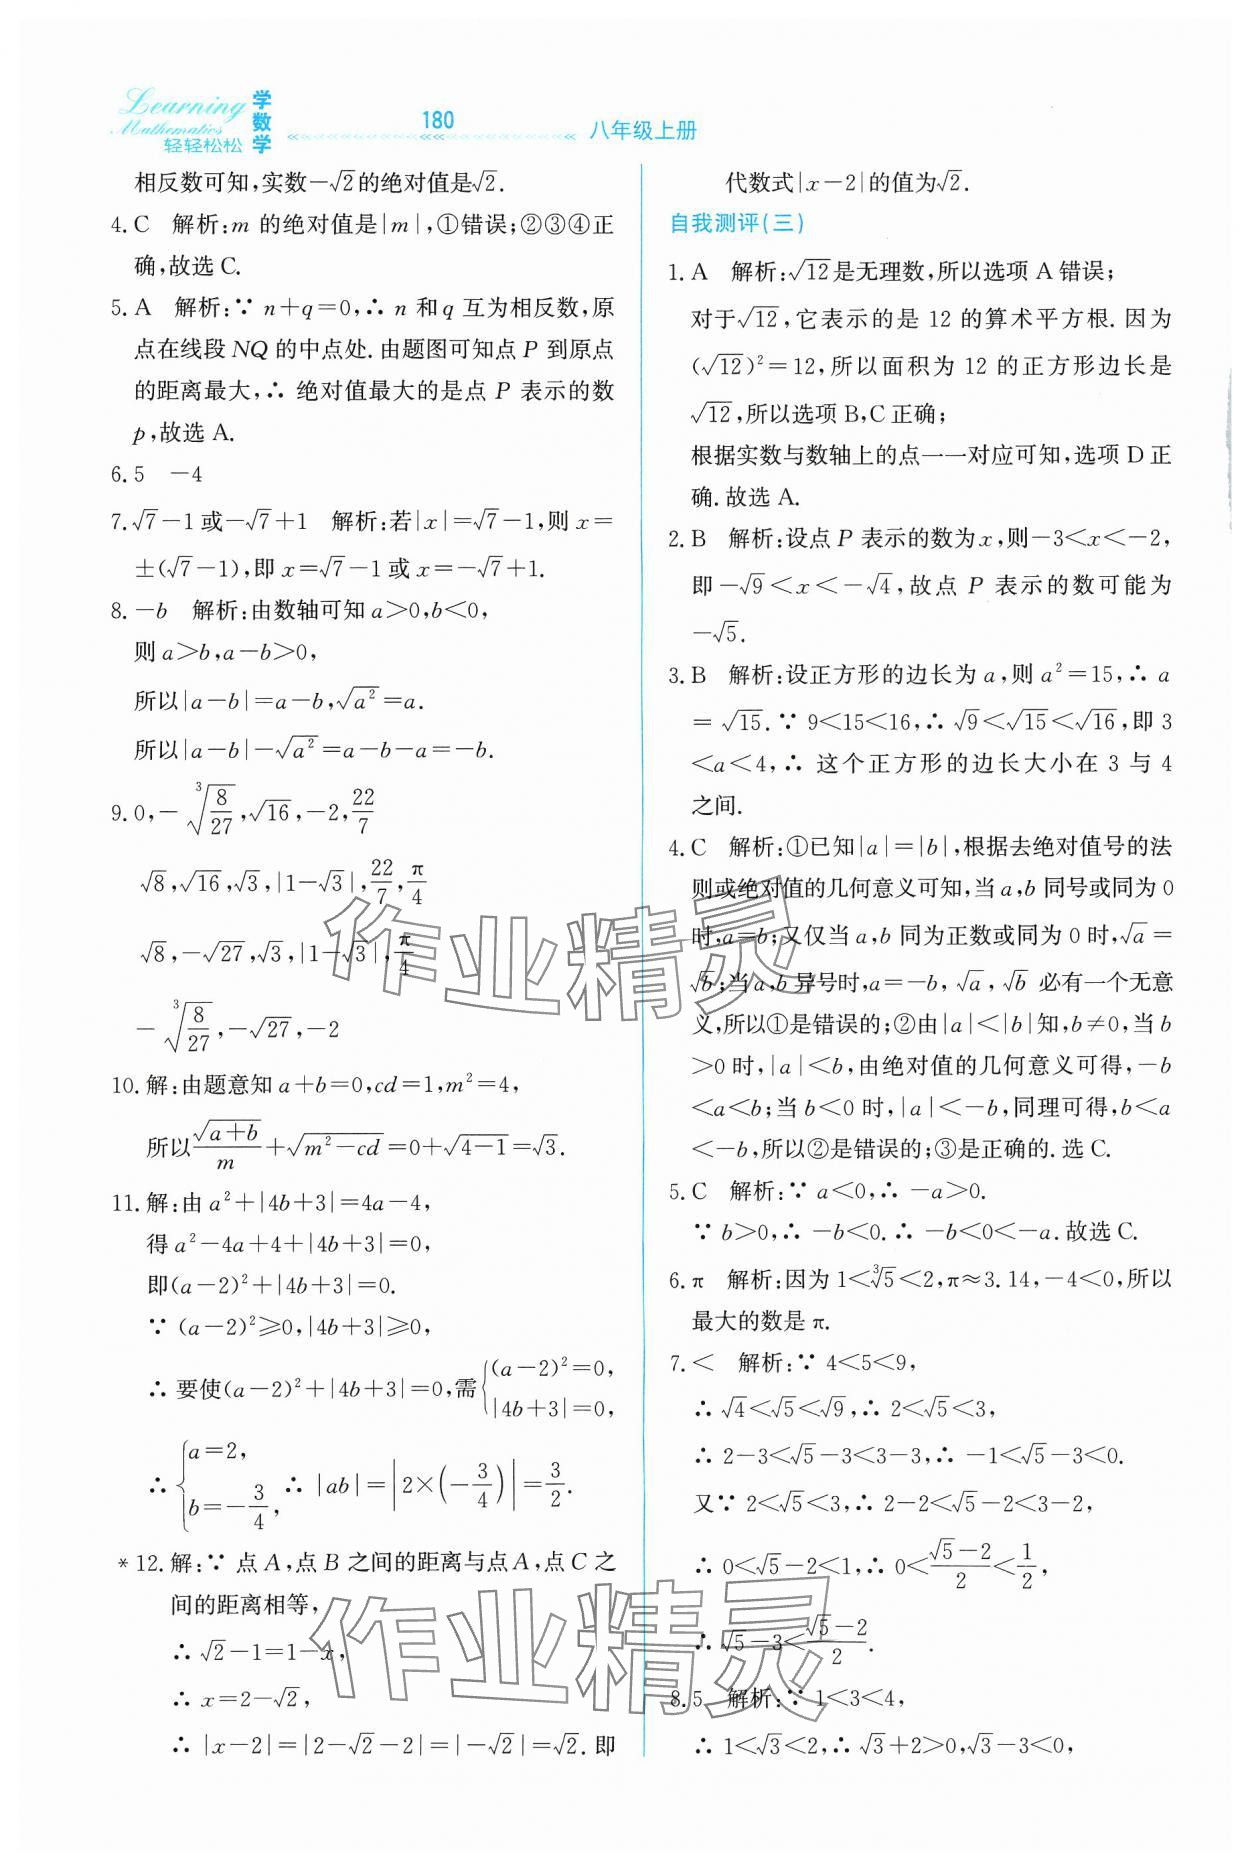 Learning
Mathematics
轻轻松松
学数学
180
八年级上册
相反数可知,实数-√2的绝对值是√2.
4. C 解析:m 的绝对值是|m|,①错误;②③④正
确,故选 C.
5. A 解析:∵ n+q=0,∴ n 和 q 互为相反数,原
点在线段 NQ 的中点处.由题图可知点 P 到原点
的距离最大,∴ 绝对值最大的是点 P 表示的数
p,故选 A.
6. 5 -4
7. √7-1 或-√7+1 解析:若|x|=√7-1,则 x=
±(√7-1),即 x=√7-1 或 x=-√7+1.
8. -b 解析:由数轴可知 a>0,b<0,
则 a>b,a-b>0,
所以|a-b|=a-b,√a²=a.
所以|a-b|-√a²=a-b-a=-b.
9. 0,-∛(8/27),√16,-2,22/7
√8,√16,√3,|1-√3|,22/7,π/4
√8,-√27,√3,|1-√3|,π/4
-∛(8/27),-√27,-2
10. 解:由题意知 a+b=0,cd=1,m²=4,
所以√(a+b)/m+√(m²-cd)=0+√(4-1)=√3.
11. 解:由 a²+|4b+3|=4a-4,
得 a²-4a+4+|4b+3|=0,
即(a-2)²+|4b+3|=0.
∵ (a-2)²≥0,|4b+3|≥0,
∴ 要使(a-2)²+|4b+3|=0,需{(a-2)²=0, |4b+3|=0,
∴ {a=2, b=-3/4, ∴ |ab|=|2×(-3/4)|=3/2.
*12. 解:∵ 点 A,点 B 之间的距离与点 A,点 C 之
间的距离相等,
∴ √2-1=1-x,
∴ x=2-√2,
∴ |x-2|=|2-√2-2|=|-√2|=√2. 即
代数式|x-2|的值为√2.
自我测评(三)
1. A 解析:√12是无理数,所以选项 A 错误;
对于√12,它表示的是 12 的算术平方根.因为
(√12)²=12,所以面积为 12 的正方形边长是
√12,所以选项 B,C 正确;
根据实数与数轴上的点一一对应可知,选项 D 正
确.故选 A.
2. B 解析:设点 P 表示的数为 x,则-3<x<-2,
即-√9<x<-√4,故点 P 表示的数可能为
-√5.
3. B 解析:设正方形的边长为 a,则 a²=15,∴ a
=√15.∵ 9<15<16,∴ √9<√15<√16,即 3
<a<4,∴ 这个正方形的边长大小在 3 与 4
之间.
4. C 解析:①已知|a|=|b|,根据去绝对值号的法
则或绝对值的几何意义可知,当 a,b 同号或同为 0
时,a=b;又仅当 a,b 同为正数或同为 0 时,√a=
√b;当 a,b 异号时,a=-b,√a,√b 必有一个无意
义,所以①是错误的;②由|a|<|b|知,b≠0,当 b
>0 时,|a|<b,由绝对值的几何意义可得,-b
<a<b;当 b<0 时,|a|<-b,同理可得,b<a
<-b,所以②是错误的;③是正确的.选 C.
5. C 解析:∵ a<0,∴ -a>0.
∵ b>0,∴ -b<0.∴ -b<0<-a.故选 C.
6. π 解析:因为 1<∛5<2,π≈3.14,-4<0,所以
最大的数是 π.
7. < 解析:∵ 4<5<9,
∴ √4<√5<√9,∴ 2<√5<3,
∴ 2-3<√5-3<3-3,∴ -1<√5-3<0.
又∵ 2<√5<3,∴ 2-2<√5-2<3-2,
∴ 0<√5-2<1,∴ 0<(√5-2)/2<1/2,
∴ √5-3<(√5-2)/2.
8. 5 解析:∵ 1<3<4,
∴ 1<√3<2,∴ √3+2>0,√3-3<0,
作业精灵
作业精灵